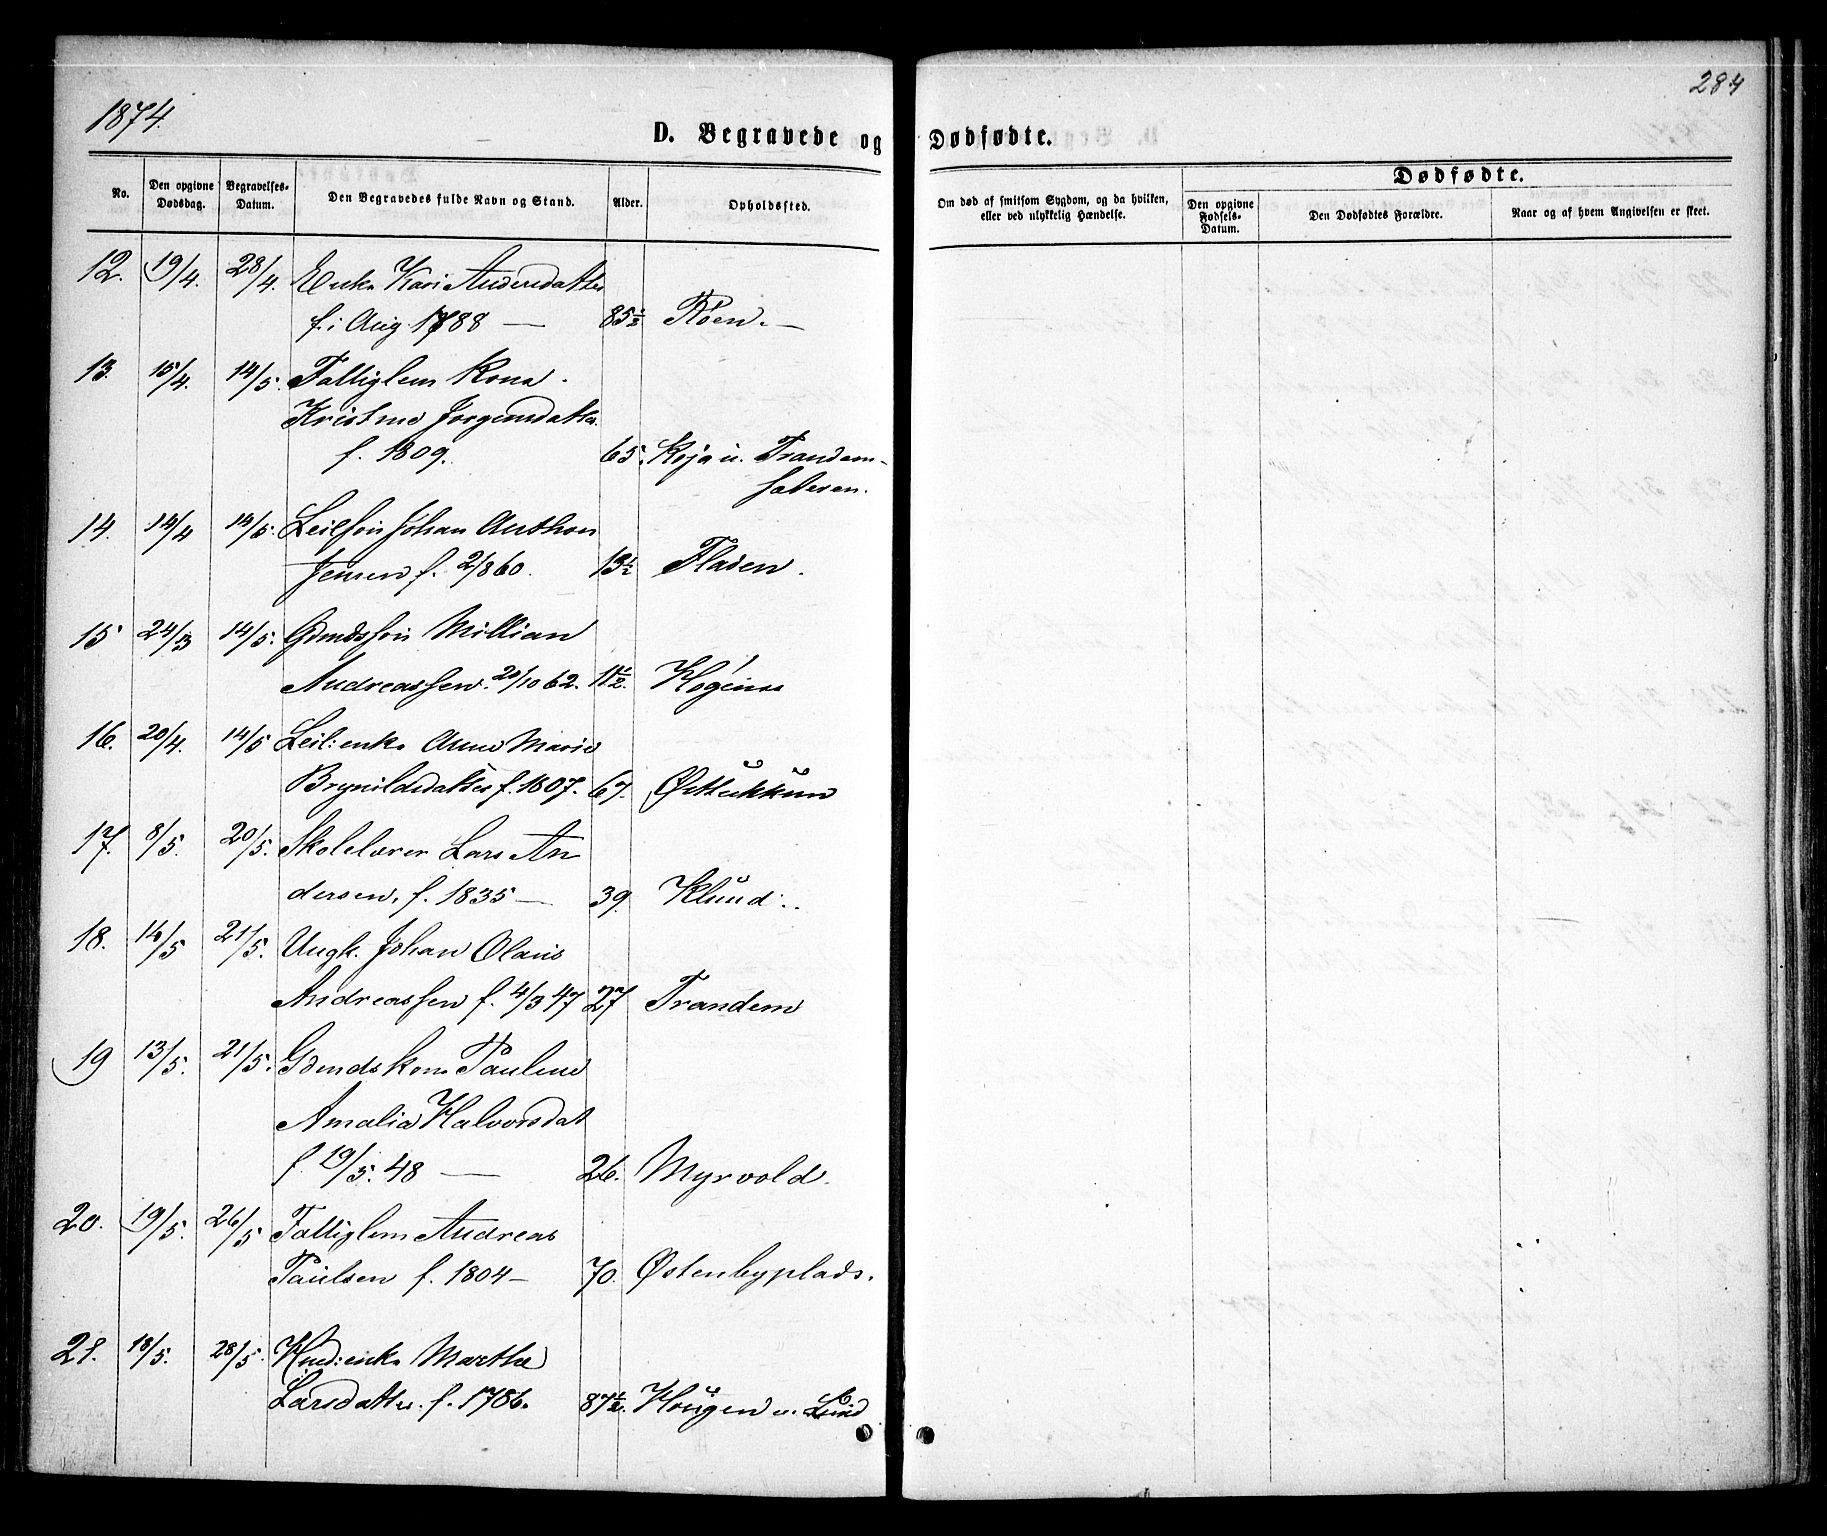 1874.
284
D. Begravede og Dødfødte.
No.
Den opgivne Dødsdag.
Begravelses-Datum.
Den Begravedes fulde Navn og Stand.
Alder.
Opholdssted.
Om død af smitsom Sygdom, og da hvilken, eller ved ulykkelig Hændelse.
Dødfødte.
Den opgivne Fødsels-Datum.
Den Dødfødtes Forældre.
Naar og af hvem Angivelsen er skeet.
12. 19/4. 28/4. Enke Kari Andersdatter
f. i Aug. 1788 — 85½ Røen. —
13. 15/4. 14/5. Fattiglem Kona
Kristine Jorgensdatter
f. 1809. 65. Koja u. Trandem-
sæteren.
14. 14/4 14/5. Leilsön Johan Anthon
Jensen f. 2/8 60. 13½ Fladen.
15 24/3 14/5. Gdmdssön Millian
Andreassen. 20/10 62. 11½.
16. 20/4. 14/5 Leil:enke Anne Marie
Brynildsdatter f. 1807. 67.
17. 8/5. 20/5. Skolelærer Lars An
dersen, f. 1835 — 39. Klund..
18. 14/5 21/5. Ungk. Johan Olaus
Andreassen f. 4/3 47 27 Trandem
19 13/5. 21/5. Gdmdskone Pauline
Amalia Halvorsdat
f. 19/5. 48 — 26. Myrvold.
20. 19/5. 26/5 Fattiglem Andreas
Paulsen f. 1804 — 70. Østenbyplads.
21. 18/5. 28/5. Hmd:enke Marthe
Larsdatter. f. 1786. 87½. Hougen u. Lund